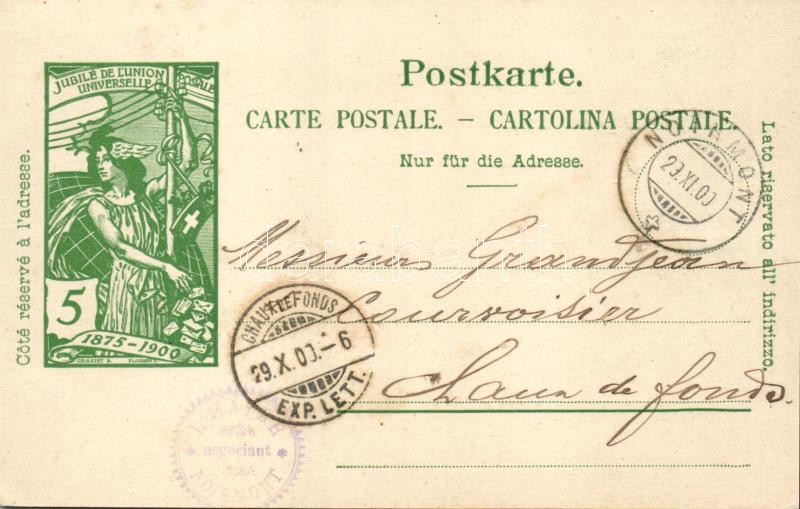 JUBILÉ DE L'UNION
UNIVERSELLE POSTALE
5
1875-1900
GRASSET D. FLORIAN
Côté réservé à l'adresse.
Postkarte.
CARTE POSTALE. – CARTOLINA POSTALE.
Nur für die Adresse.
Lato riservato all' indirizzo.
NOIRMONT
29.XI.00
Messieurs Grandjean
Courvoisier
Chaux de fonds.
CHAUX DE FONDS
29.X.00.–6
EXP. LETT.
negociant
NOIRMONT